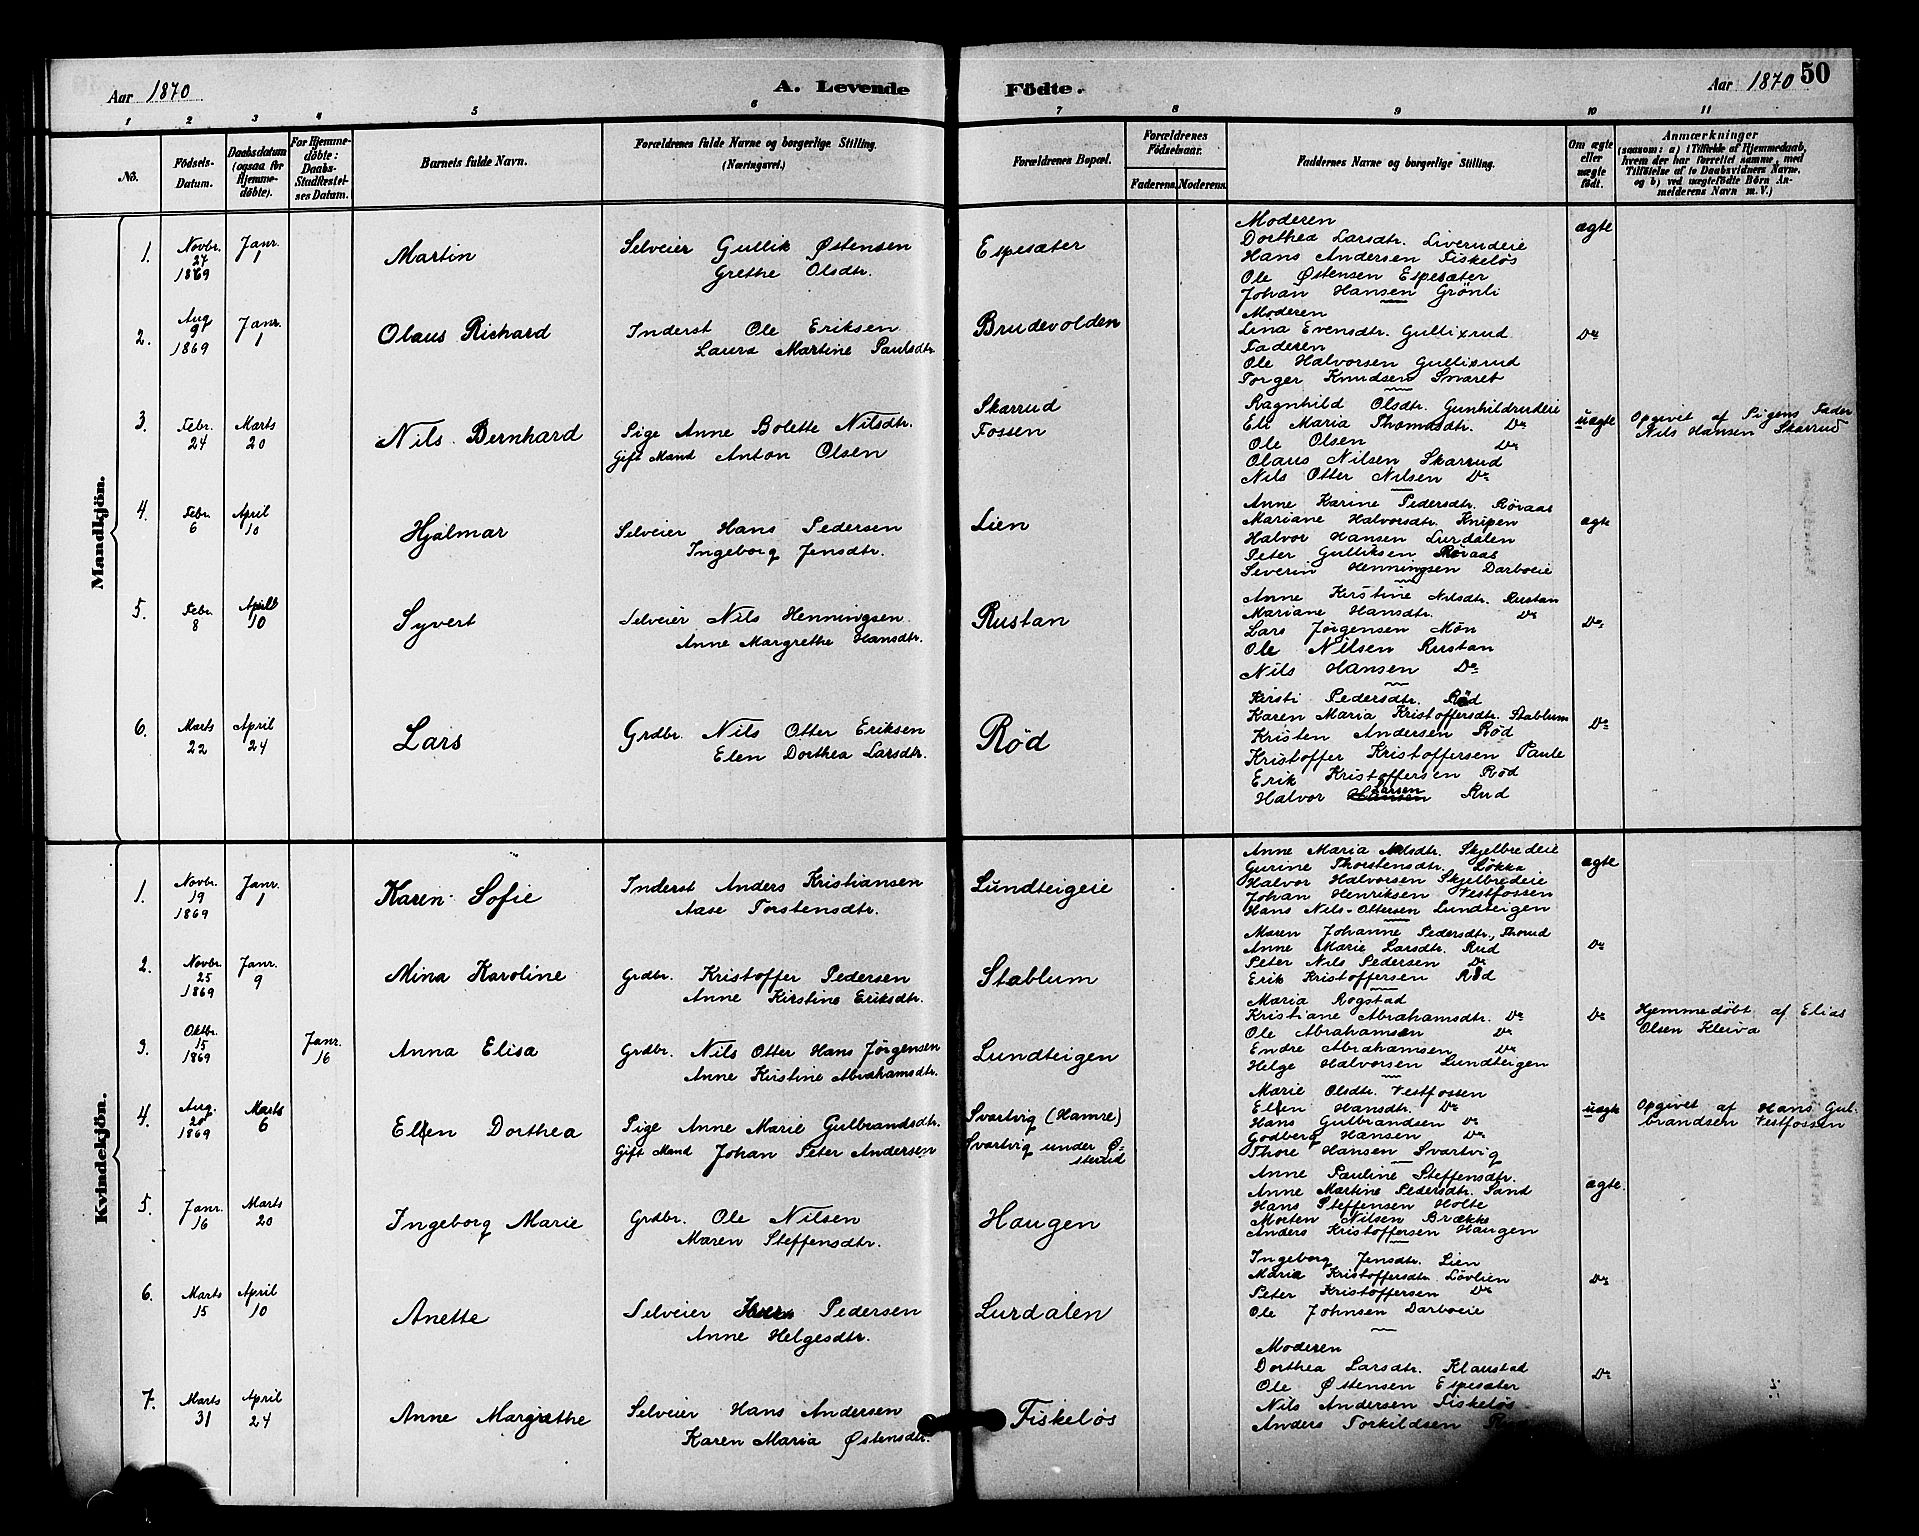 Aar 1870
A. Levende Födte.
Aar 1870 50
1 2 3 4 5 6 7 8 9 10 11
No.
Födsels-Datum.
Daabsdatum (ogsaa for Hjemmedöbte).
For Hjemmedöbte: Daabs-Stadfæstelses Datum.
Barnets fulde Navn.
Forældrenes fulde Navne og borgerlige Stilling. (Næringsvei.)
Forældrenes Bopæl.
Forældrenes Födselsaar.
Faderens. Moderens.
Faddernes Navne og borgerlige Stilling.
Om ægte eller uægte födt.
Anmærkninger
(saasom: a) i Tilfælde af Hjemmedaab, hvem der har forrettet samme, med Tilföielse af to Daabsvidners Navne, og b) ved uægtefödte Börn Anmelderens Navn m. V.)
Mandkjön.
1. Novbr. 27 1869 Janr. 1 Martin
Selveier Gullik Østensen
Grethe Olsdtr.
Espesæter
Moderen
Dorthea Larsdtr. Liverudeie
Hans Andersen Fiskeløs
Ole Østensen Espesæter
Johan Hansen Grönli
ægte
2. Aug 9 1869 Janr. 1 Olaus Richard
Inderst Ole Eriksen
Laura Martine Paulsdtr
Brudevolden
Moderen
Lina Evensdtr. Gullixrud
Faderen
Ole Halvorsen Gullixrud
Torger Knudsen Smaret
Do
3. Febr. 24 Marts 20 Nils Bernhard
Pige Anne Bolette Nilsdtr.
Gift Mand Anton Olsen
Skarrud
Fossen
Ragnhild Olsdtr. Gunhildrudeie
Eli Maria Thomasdtr. Do
Ole Olsen Do
Olaus Nilsen Skarrud
Nils Otter Nilsen Do
uægte
Opgivet af Pigens Fader
Nils Hansen Skarrud
4. Febr. 6 April 10 Hjalmar
Selveier Hans Pedersen
Ingeborg Jensdtr.
Lien
Anne Karine Pedersdtr. Røvaas
Mariane Halvorsdtr. Knipen
Halvor Hansen Lurdalen
Peter Gulliksen Røvaas
Severin Henningsen Darboeie
ægte
5. Febr. 8 April 10 Syvert
Selveier Nils Henningsen
Anne Margrethe Hansdtr.
Rustan
Anne Kirstine Nilsdtr. Rustan
Mariane Hansdtr. Do
Lars Jørgensen Møn
Ole Nilsen Rustan
Nils Hansen Do
Do
6. Marts 22 April 24 Lars
Grdbr. Nils Otter Eriksen
Elen Dorthea Larsdtr.
Rød
Kirsti Pedersdtr. Rød
Karen Maria Kristoffersdtr. Stablum
Kristen Andersen Rød
Kristoffer Kristoffersen Paule
Erik Kristoffersen Rød
Halvor Larsen Rud
Do
Kvindekjön.
1. Novbr. 19 1869 Janr. 1 Karen Sofie
Inderst Anders Kristiansen
Aase Torstensdtr.
Lundteigeie
Anne Maria Nilsdtr. Skjelbredeie
Gurine Thorstensdtr. Løkka
Halvor Halvorsen Skjelbredeie
Johan Henriksen Vestfossen
Hans Nils-Ottersen Lundteigen
ægte
2. Novbr. 25 1869 Janr. 9 Mina Karoline
Grdbr. Kristoffer Pedersen
Anne Kirstine Eriksdtr.
Stablum
Maren Johanne Pedersdtr., Thorud
Anne Marie Larsdtr. Rud
Peter Nils Pedersen Do
Erik Kristoffersen Rød
Do
3. Oktbr. 15 1869 Janr. 16 Anna Elisa
Grdbr. Nils Otter Hans Jørgensen
Anne Kirstine Abrahamsdtr.
Lundteigen
Maria Rogstad
Kristiane Abrahamsdtr. Do
Ole Abrahamsen Do
Endre Abrahamsen Do
Helge Halvorsen Lundteigen
Do
Hjemmedøbt af Elias
Olsen Kleiva
4. Aug. 20 1869 Marts 6 Ellen Dorthea
Pige Anne Marie Gulbrandsdtr.
Gift Mand Johan Peter Andersen
Svartvig (Hamre)
Svartvig under Ø-
sterud
Marie Olsdtr. Vestfossen
Ellen Hansdtr. Do
Hans Gulbrandsen Do
Godberg Hansen Do
Thore Hansen Svartvig
uægte
Opgivet af Hans Gul-
brandsen Vestfossen
5. Janr. 16 Marts 20 Ingeborg Marie
Grdbr. Ole Nilsen
Maren Steffensdtr.
Haugen
Anne Pauline Steffensdtr.
Anne Martine Pedersdtr. Sand
Hans Steffensen Holte
Morten Nilsen Brække
Anders Kristoffersen Haugen
ægte.
6. Marts 15 April 10 Anette
Selveier Pedersen
Anne Helgesdtr.
Lurdalen
Ingeborg Jensdtr. Lien
Maria Kristoffersdtr. Løvlien
Peter Kristoffersen Do
Ole Johnsen Darboeie
Do
7. Marts 31 April 24 Anne Margrethe
Selveier Hans Andersen
Karen Maria Østensdtr.
Fiskeløs
Moderen
Dorthea Larsdtr. Klaustad
Ole Østensen Espesæter
Nils Andersen Fiskeløs
Anders Torkildsen
Do